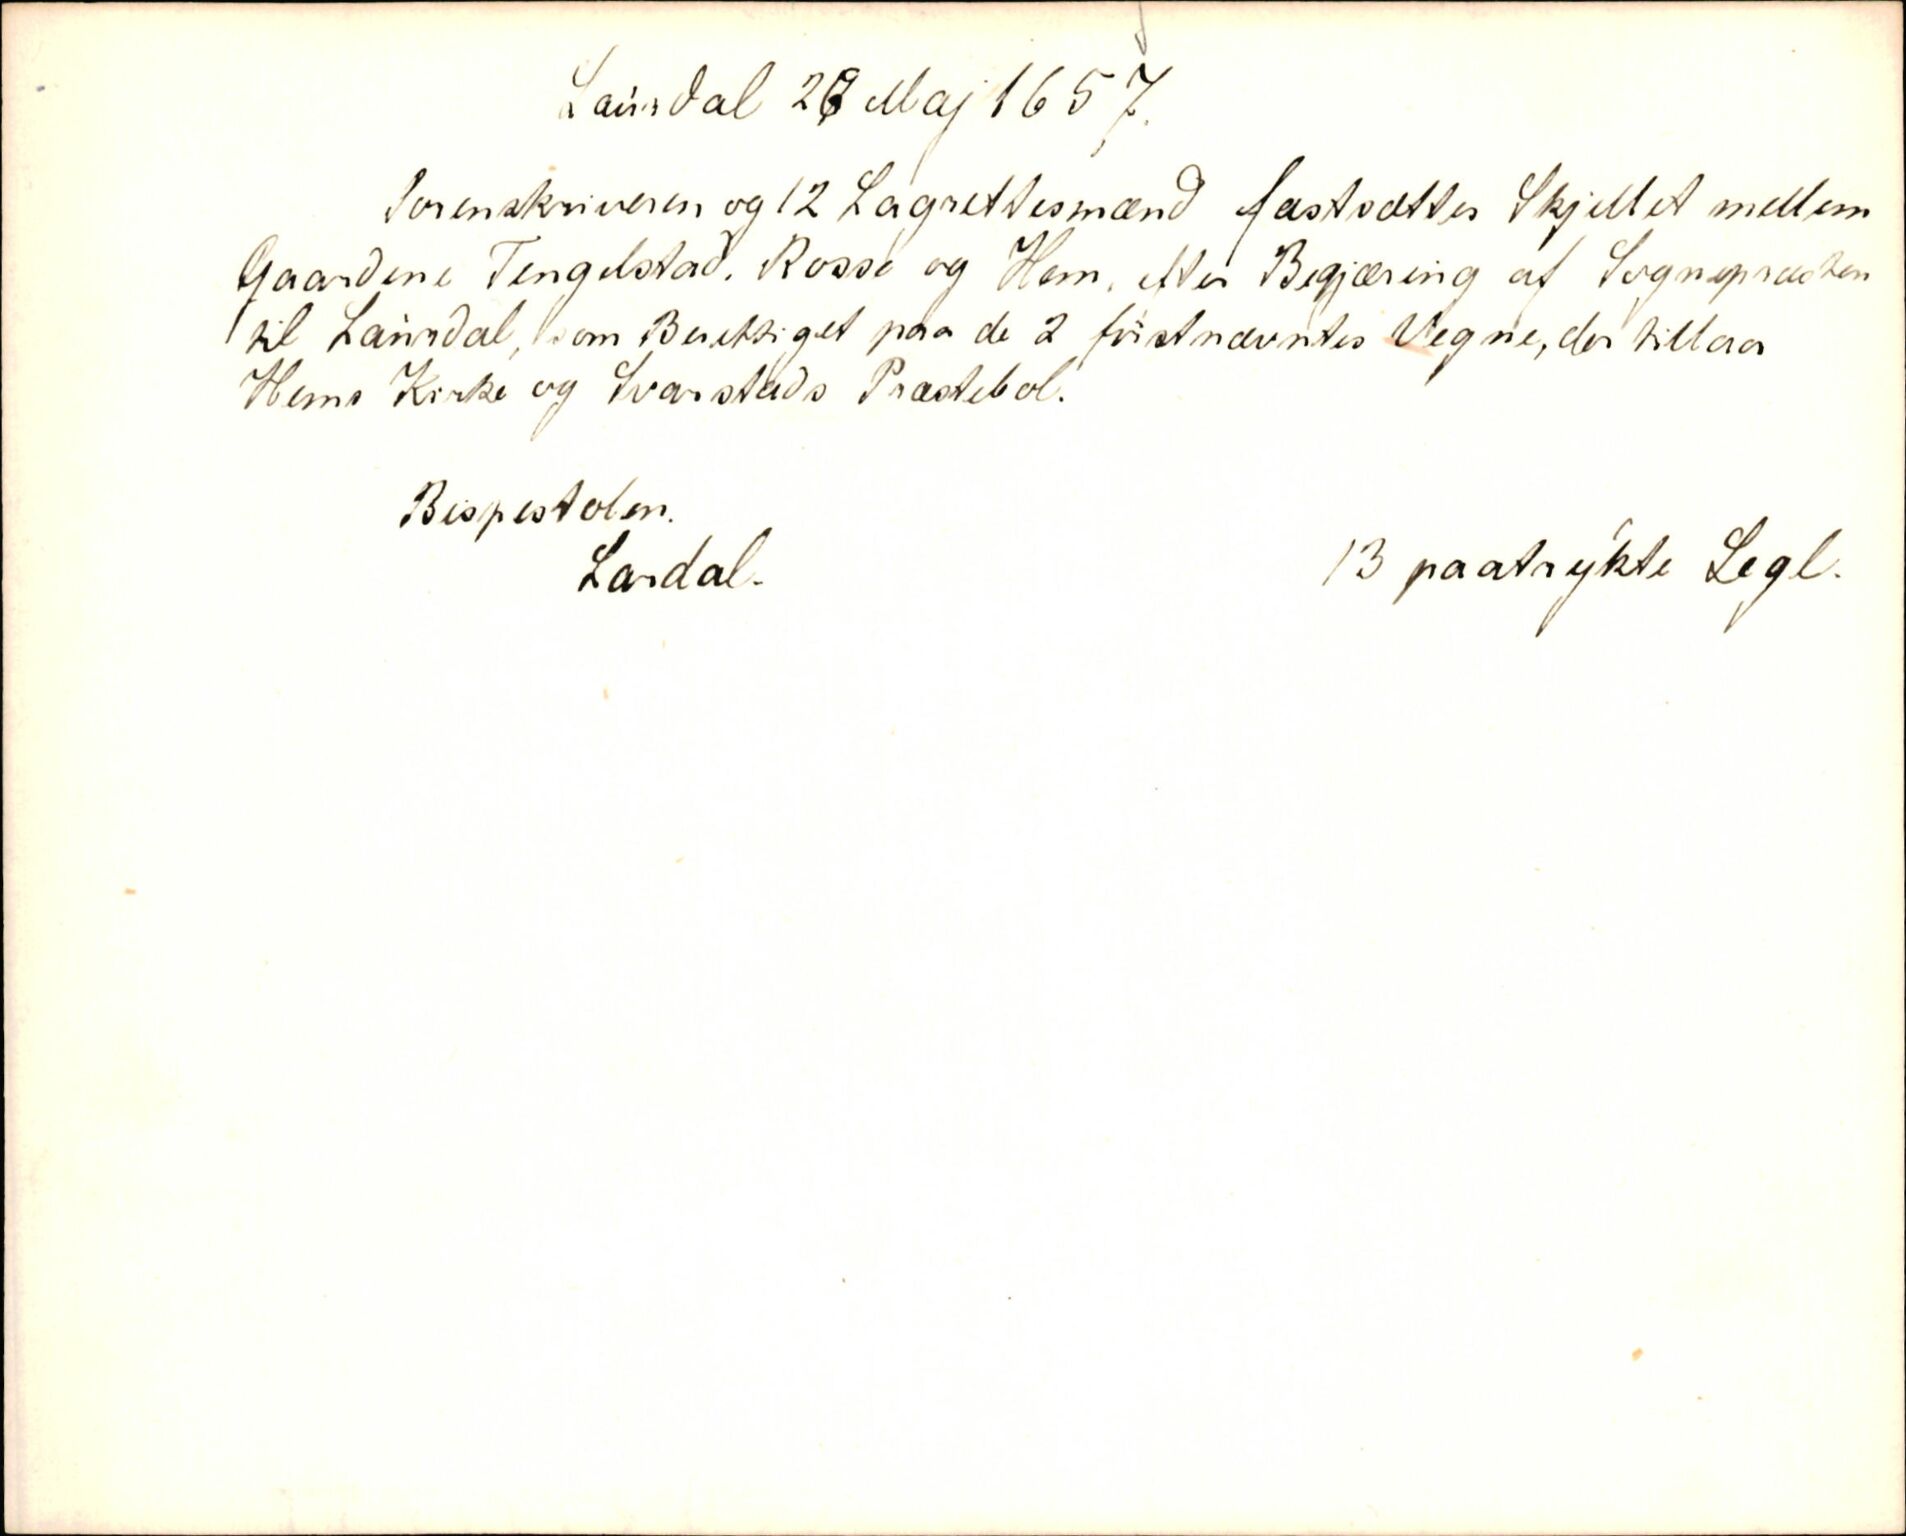 Laurdal 28 Maj 1657.
Sorenskriveren og 12 Lagrettesmænd fastsætter Skjellet mellem
Gaardene Tengelstad, Rosse og Hem, efter Begjæring af Sognepræsten
til Laurdal, som Berettiget paa de 2 förstnævntes Vegne, der tillaa
Hems Kirke og Svarstads Præstebol.
Bispestolen.
Lardal.
13 paatrykte Segl.